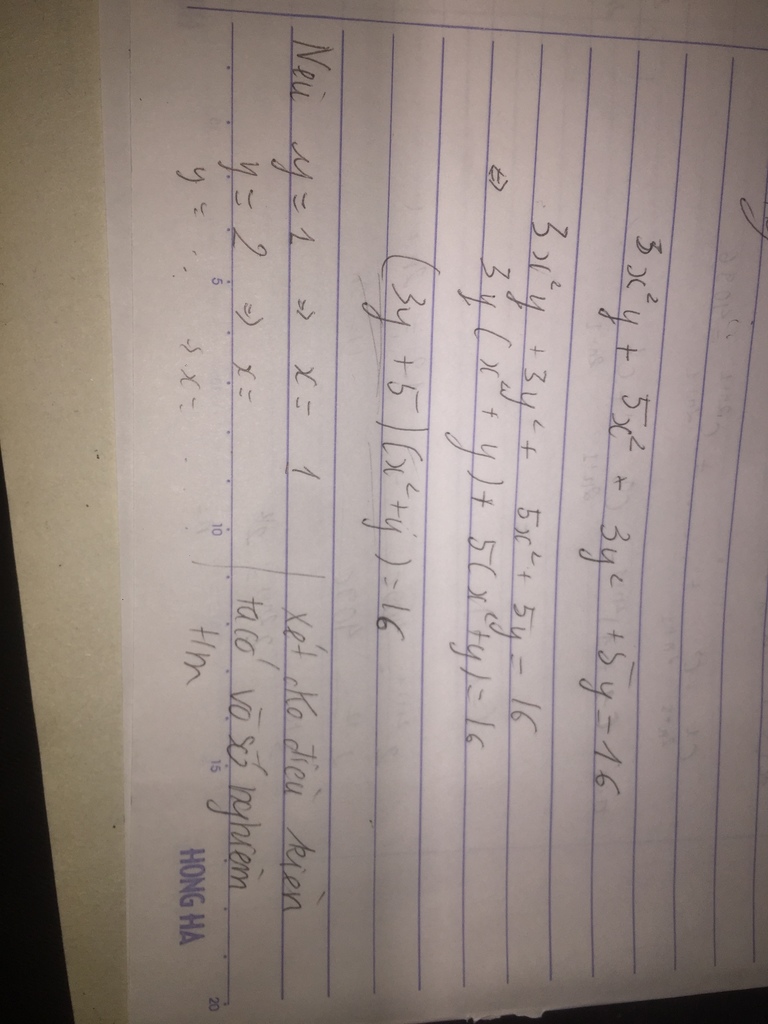 3x²y + 5x² + 3y² + 5y = 16
3x²y + 3y² + 5x² + 5y = 16
⇔ 3y(x² + y) + 5(x² + y) = 16
(3y + 5)(x² + y) = 16
Nếu y = 1 ⇒ x = 1 xét cho điều kiện
y = 2 ⇒ x = ta có vô số nghiệm
y = . . ⇒ x = . . t/m
5 10 15 20
HONG HA